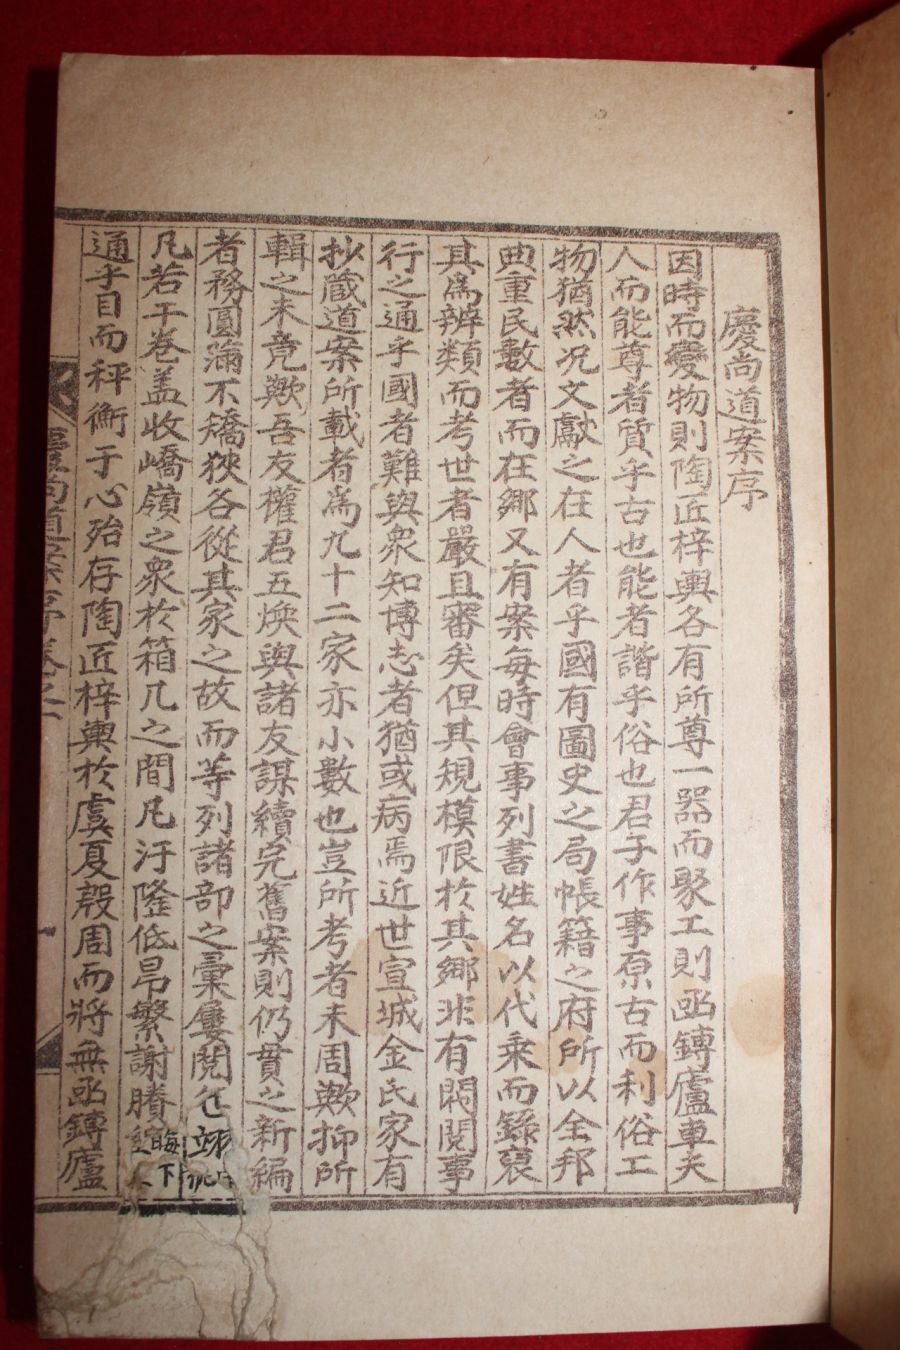 慶尚道案序
因時而變物則陶匠梓輿各有所尊一器而聚工則凾鏄廬車夫
人而能尊者質乎古也能者諧乎俗也君子作事原古而利俗工
物猶然况文獻之在人者乎國有圖史之局帳籍之府所以全邦
典重民數者而在鄉又有案每時會事列書姓名以代乘而錄裒
其爲辨類而考世者嚴且審矣但其規模限於其鄉非有閥閱事
行之通乎國者難與衆知博志者猶或病焉近世宣城金氏家有
抄蔵道案所載者爲九十二家亦小數也豈所考者未周歟抑所
輯之未竟歟吾友權君五煥與諸友謀續完舊案則仍貫之新編
者務圓滿不矯狹各從其家之故而等列諸部之彙屢閱
凡若干卷盖收嶠嶺之衆於箱几之間凡汙隆低昂繁謝賸 晦下
通乎目而秤衡于心殆存陶匠梓輿於虞夏殷周而將無凾鏄廬
慶尚道案序